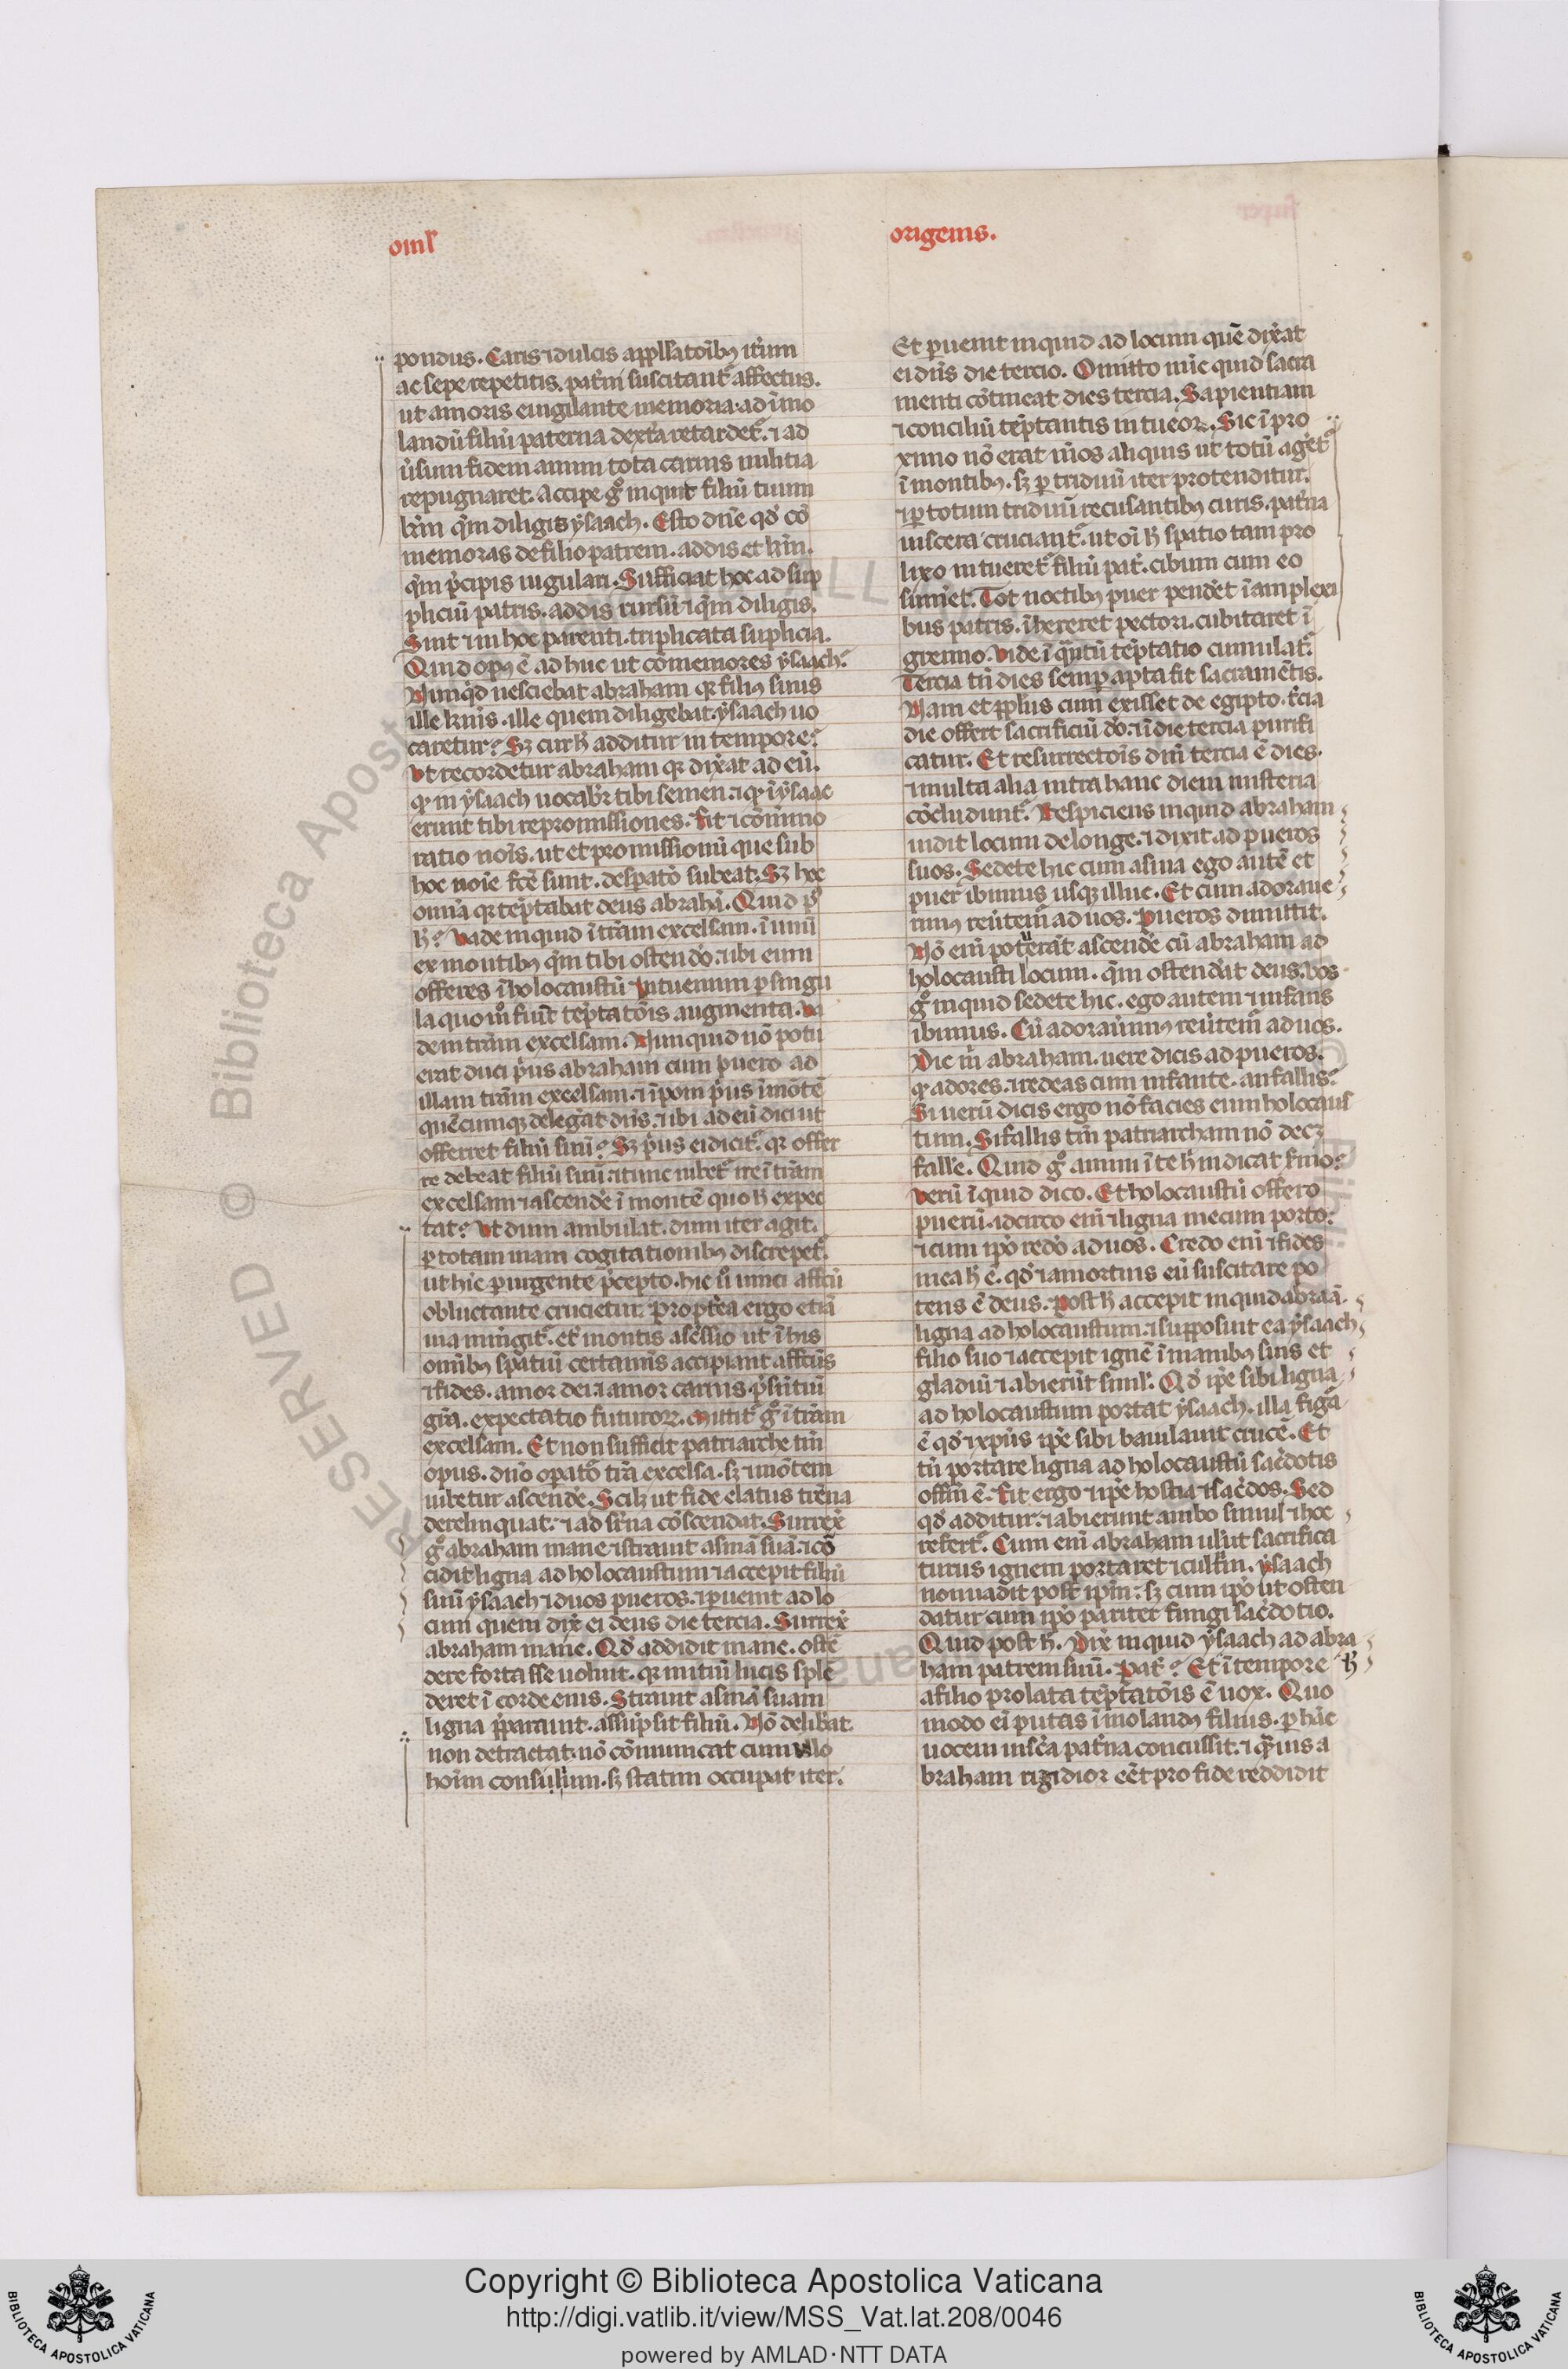 oml
origenis.
pondus. Caris ⁊ dulcis appellatōibꝰ iťum
ac sepe repetitis. pat̄ni suscitant᷑ affectus.
ut amoris euigilante memoria. ad īmo
landū filiū paterna dext̄a retardet᷑. ⁊ ad
ũsum fidem animi tota carnis militia
repugnaret. Accipe gͦ inquit filiū tuum
kr̄m qm̄ diligis ysaach. Esto dn̄e qđ cō
memoras de filio patrem. addis et kr̄m.
qm̄ p̄cipis iugulari. Sufficiat hoc ad sup
pliciū patris. addis rursū ⁊ qm̄ diligis.
Sint ⁊ in hoc parenti. triplicata suplicia.
Quid opꝰ ē ad huc ut cōmemores ysaach?
Nunqđ nesciebat abraham qꝛ filiꝰ suus
ille kr̄mꝰ. ille quem diligebat. ysaach uo
caretur? Sꝫ cur ħ additur in tempore?
Ut recordetur abraham qꝛ dixat ad eū.
qꝛ in ysaach uocabr̄ tibi semen. ⁊ qꝛ ī ysaac
erunt tibi repromissiones. Fit ⁊ cōmmo
ratio nōis. ut et promissionū que sub
hoc noīe fcē sunt. despatō subeat. Sꝫ hoc
omīa qꝛ tēptabat deus abrahā. Quid pͦ
ħ? Uade inquid ī tr̄am excelsam. ī unū
ex montibꝰ qm̄ tibi ostendo. ⁊ ibi eum
offeres ī holocaustū Intuemini ꝑ singu
la quom̊ fiūt tēptatōis augmenta. Ua
de in tr̄am excelsam. Nunquid nō potu
erat duci pͥus abraham cum puero ad
illam tr̄am excelsam. ⁊ īponi pͥus ī mōtē
quēcumqꝫ delegat dn̄s. ⁊ ibi ad eū dici ut
offerret filiū suū? Sꝫ pͥus ei dicit᷑. qꝛ offer
re debeat filiū suū. ⁊ tunc iubet᷑ ire ī tr̄am
excelsam ⁊ ascendē ī montē quo ħ expec
tat? Ut dum ambulat. dum iter agit.
ꝑ totam uiam cogitationibꝰ discrepet᷑.
ut hīc ꝑurgente p̄cepto. hīc uͦ unici affcū
obluctante crucietur. Proptēa ergo etiā
uia iniungit᷑. et montis ascēssio ut ī his
omībꝰ spatiū certaminis accipiant affcūs
⁊ fides. amor dei. ⁊ amor carnis. p̄sentiū
grā. expectatio futuroꝝ. Mittit᷑ gͦ ī tr̄am
excelsam. Et non sufficit patriarche tm̄
opus. dn̄o opatō tr̄a excelsa. sꝫ ⁊ mōtem
iubetur ascendē. Scilꝫ ut fide elatus tr̄ena
derelinquat. ⁊ ad sr̄na cōscendat. Surrex̄
gͦ abraham mane ⁊ strauit asinā suā. ⁊ cō
cidit ligna ad holocaustum ⁊ accepit filiū
suū ysaach ⁊ duos pueros. ⁊ ꝑuenit ad lo
cum quem dix̄ ei deus die tercia. Surrex̄
abraham mane. Qđ addidit mane. ostē
dere fortasse uoluit. qꝛ initiū lucis splē
deret ī corde eius. Strauit asinā suam
ligna p̄parauit. assūpsit filiū. Nō delibat.
non detractat. nō cōmunicat cum ullo
hoim consulium. sꝫ statim occupat iter.
Et ꝑuenit inquid ad locum quē dixat
ei dn̄s die tercio. Omitto nūc quid sacra
menti cōtineat dies tercia. Sapientiam
⁊ conciliū tēptantis intueoꝛ. Sic ī pro
ximo nō erat mōs aliquis ut totū aget᷑
ī montibꝰ. sꝫ ꝑ triduū iter protenditur.
⁊ ꝑ totum triduū recusantibꝰ curis. pat̄na
uiscera cruciant᷑. ut oī ħ spatio tam pro
lixo intueret᷑ filiū pat̄. cibum cum eo
sumet. Tot noctibꝰ puer pendet ī amplexi
bus patris. īhereret pectori. cubitaret ī
gremio. Uide ī quātū tēptatio cumulat᷑.
Tercia tn̄ dies semꝑ apta fit sacramētis.
Nam et ppl̄us cum exisset de egipto. t̄cia
die offert sacrificiū dō. ⁊ ī die tercia purifi
catur. Et resurrectōis dn̄i tercia ē dies.
⁊ multa alia intra hanc diem misteria
cōcludunt᷑. Respiciens inquid abraham
uidit locum de longe. ⁊ dixit ad pueros
suos. Sedete hic cum asina ego autē et
puer ibimus usqꝫ illuc. Et cum adoraue
rimꝰ reūtem̄ ad uos. Pueros dimittit.
Nō enī poterāt ascendē cū abraham ad
holocausti locum. qm̄ ostendat deus. Uos
gͦ inquid sedete hic. ego autem ⁊ infans
ibimus. Cū adoraūimꝰ reūtem̄ ad uos.
Dic m̄ abraham. uere dicis ad pueros.
qꝛ adores. ⁊ redeas cum infante. an fallis?
Si uerū dicis ergo nō facies eum holocaus
tum. Si fallis tm̄ patriarcham nō decꝫ
fallē. Quid gͦ animi ī te ħ indicat s̄mo?
Uerū ī quid dico. Et holocaustū offero
puerū. idcirco enī ⁊ ligna mecum porto.
⁊ cum ipō redō ad uos. Credo enī ⁊ fides
mea ħ ē. qđ ⁊ a mortuis eū suscitare po
tens ē deus. Post ħ accepit inquid abraā.
ligna ad holocaustum. ⁊ supposuit ea ysaach
filio suo ⁊ accepit ignē ī manibꝰ suis et
gladiū ⁊ abierūt siml̄. Qđ ipē sibi ligna
ad holocaustum portat ysaach. illa figā
ē qđ ⁊ xpūs ipē sibi baiulauit crucē. Et
tn̄ portare ligna ad holocaustū sac̄dotis
offm̄ ē. Fit ergo ⁊ ipē hostia ⁊ sac̄dos. Sed
qđ additur. ⁊ abierunt ambo simul ⁊ hoc
refert᷑. Cum enī abraham uelut sacrifica
turus ignem portaret ⁊ cultrm̄. ysaach
non uadit post ipm̄. sꝫ cum ipō ut osten
datur cum ipō pariter fungi sac̄dotio.
Quid post ħ. Dix̄ inquid ysaach ad abra
ham patrem suū. Pat̄? Et ī tempore ħ
a filio prolata tēptatōis ē uox. Quo
modo eī putas īmolandꝰ filius. ꝑ hāc
uocem uisc̄a pat̄na concussit. ⁊ qꝫuis a
braham rigidior eēt pro fide reddidit
Copyright © Biblioteca Apostolica Vaticana
http://digi.vatlib.it/view/MSS_Vat.lat.208/0046
powered by AMLAD·NTT DATA